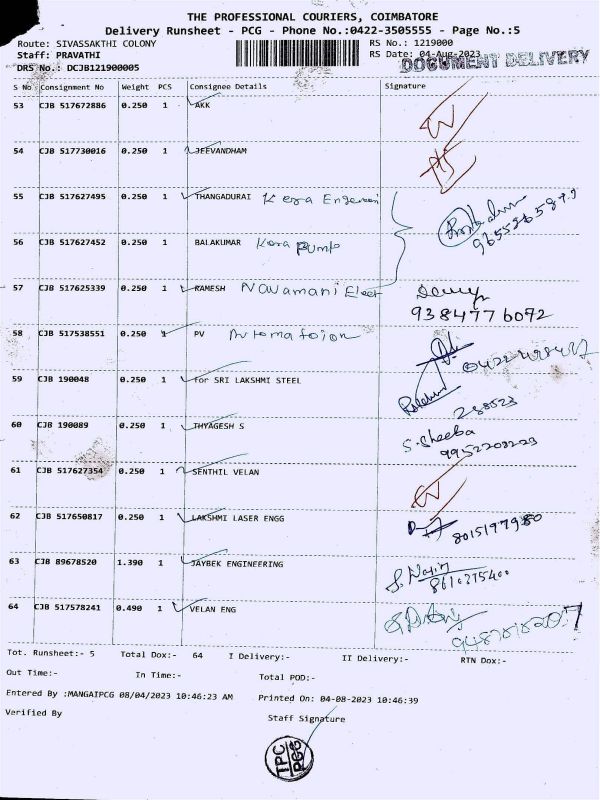 THE PROFESSIONAL COURIERS, COIMBATORE
Delivery Runsheet - PCG - Phone No.:0422-3505555 - Page No.:5
Route: SIVASSAKTHI COLONY RS No.: 1219000
Staff: PRAVATHI RS Date: 04-Aug-2023
DOCUMENT DELIVERY
DRS No.: DCJB121900005
S No Consignment No Weight PCS Consignee Details Signature
53 CJB 517672886 0.250 1 AKK
54 CJB 517730016 0.250 1 JEEVANDHAM
55 CJB 517627495 0.250 1 THANGADURAI
56 CJB 517627452 0.250 1 BALAKUMAR Kora Pump
57 CJB 517625339 0.250 1 RAMESH Navamani Elect
9384776092
58 CJB 517538551 0.250 1 PV
59 CJB 190048 0.250 1 for SRI LAKSHMI STEEL
60 CJB 190089 0.250 1 THYAGESH S S. Sheeba
61 CJB 517627354 0.250 1 SENTHIL VELAN
62 CJB 517650817 0.250 1 LAKSHMI LASER ENGG
8015197980
63 CJB 89678520 1.390 1 JAYBEK ENGINEERING
8610275400
64 CJB 517578241 0.490 1 VELAN ENG
Tot. Runsheet:- 5 Total Dox:- 64 I Delivery:- II Delivery:- RTN Dox:-
Out Time:- In Time:- Total POD:-
Entered By :MANGAIPCG 08/04/2023 10:46:23 AM Printed On: 04-08-2023 10:46:39
Verified By Staff Signature
TPC
PCG